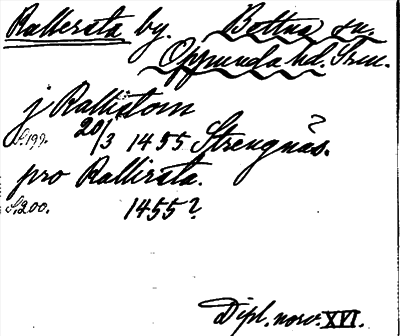 Rallersta by. Bettna sn.
Oppunda hd. Srm.
j Rallistom
S. 199. 20/3 1455 Strengnäs. ?
pro Rallirsta.
S. 200. 1455?
Dipl. norv. XVI.